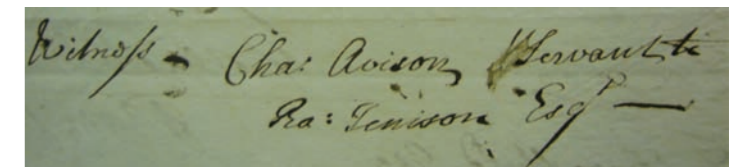 Witness Cha: Avison Servant to
Ra: Jenison Esqr